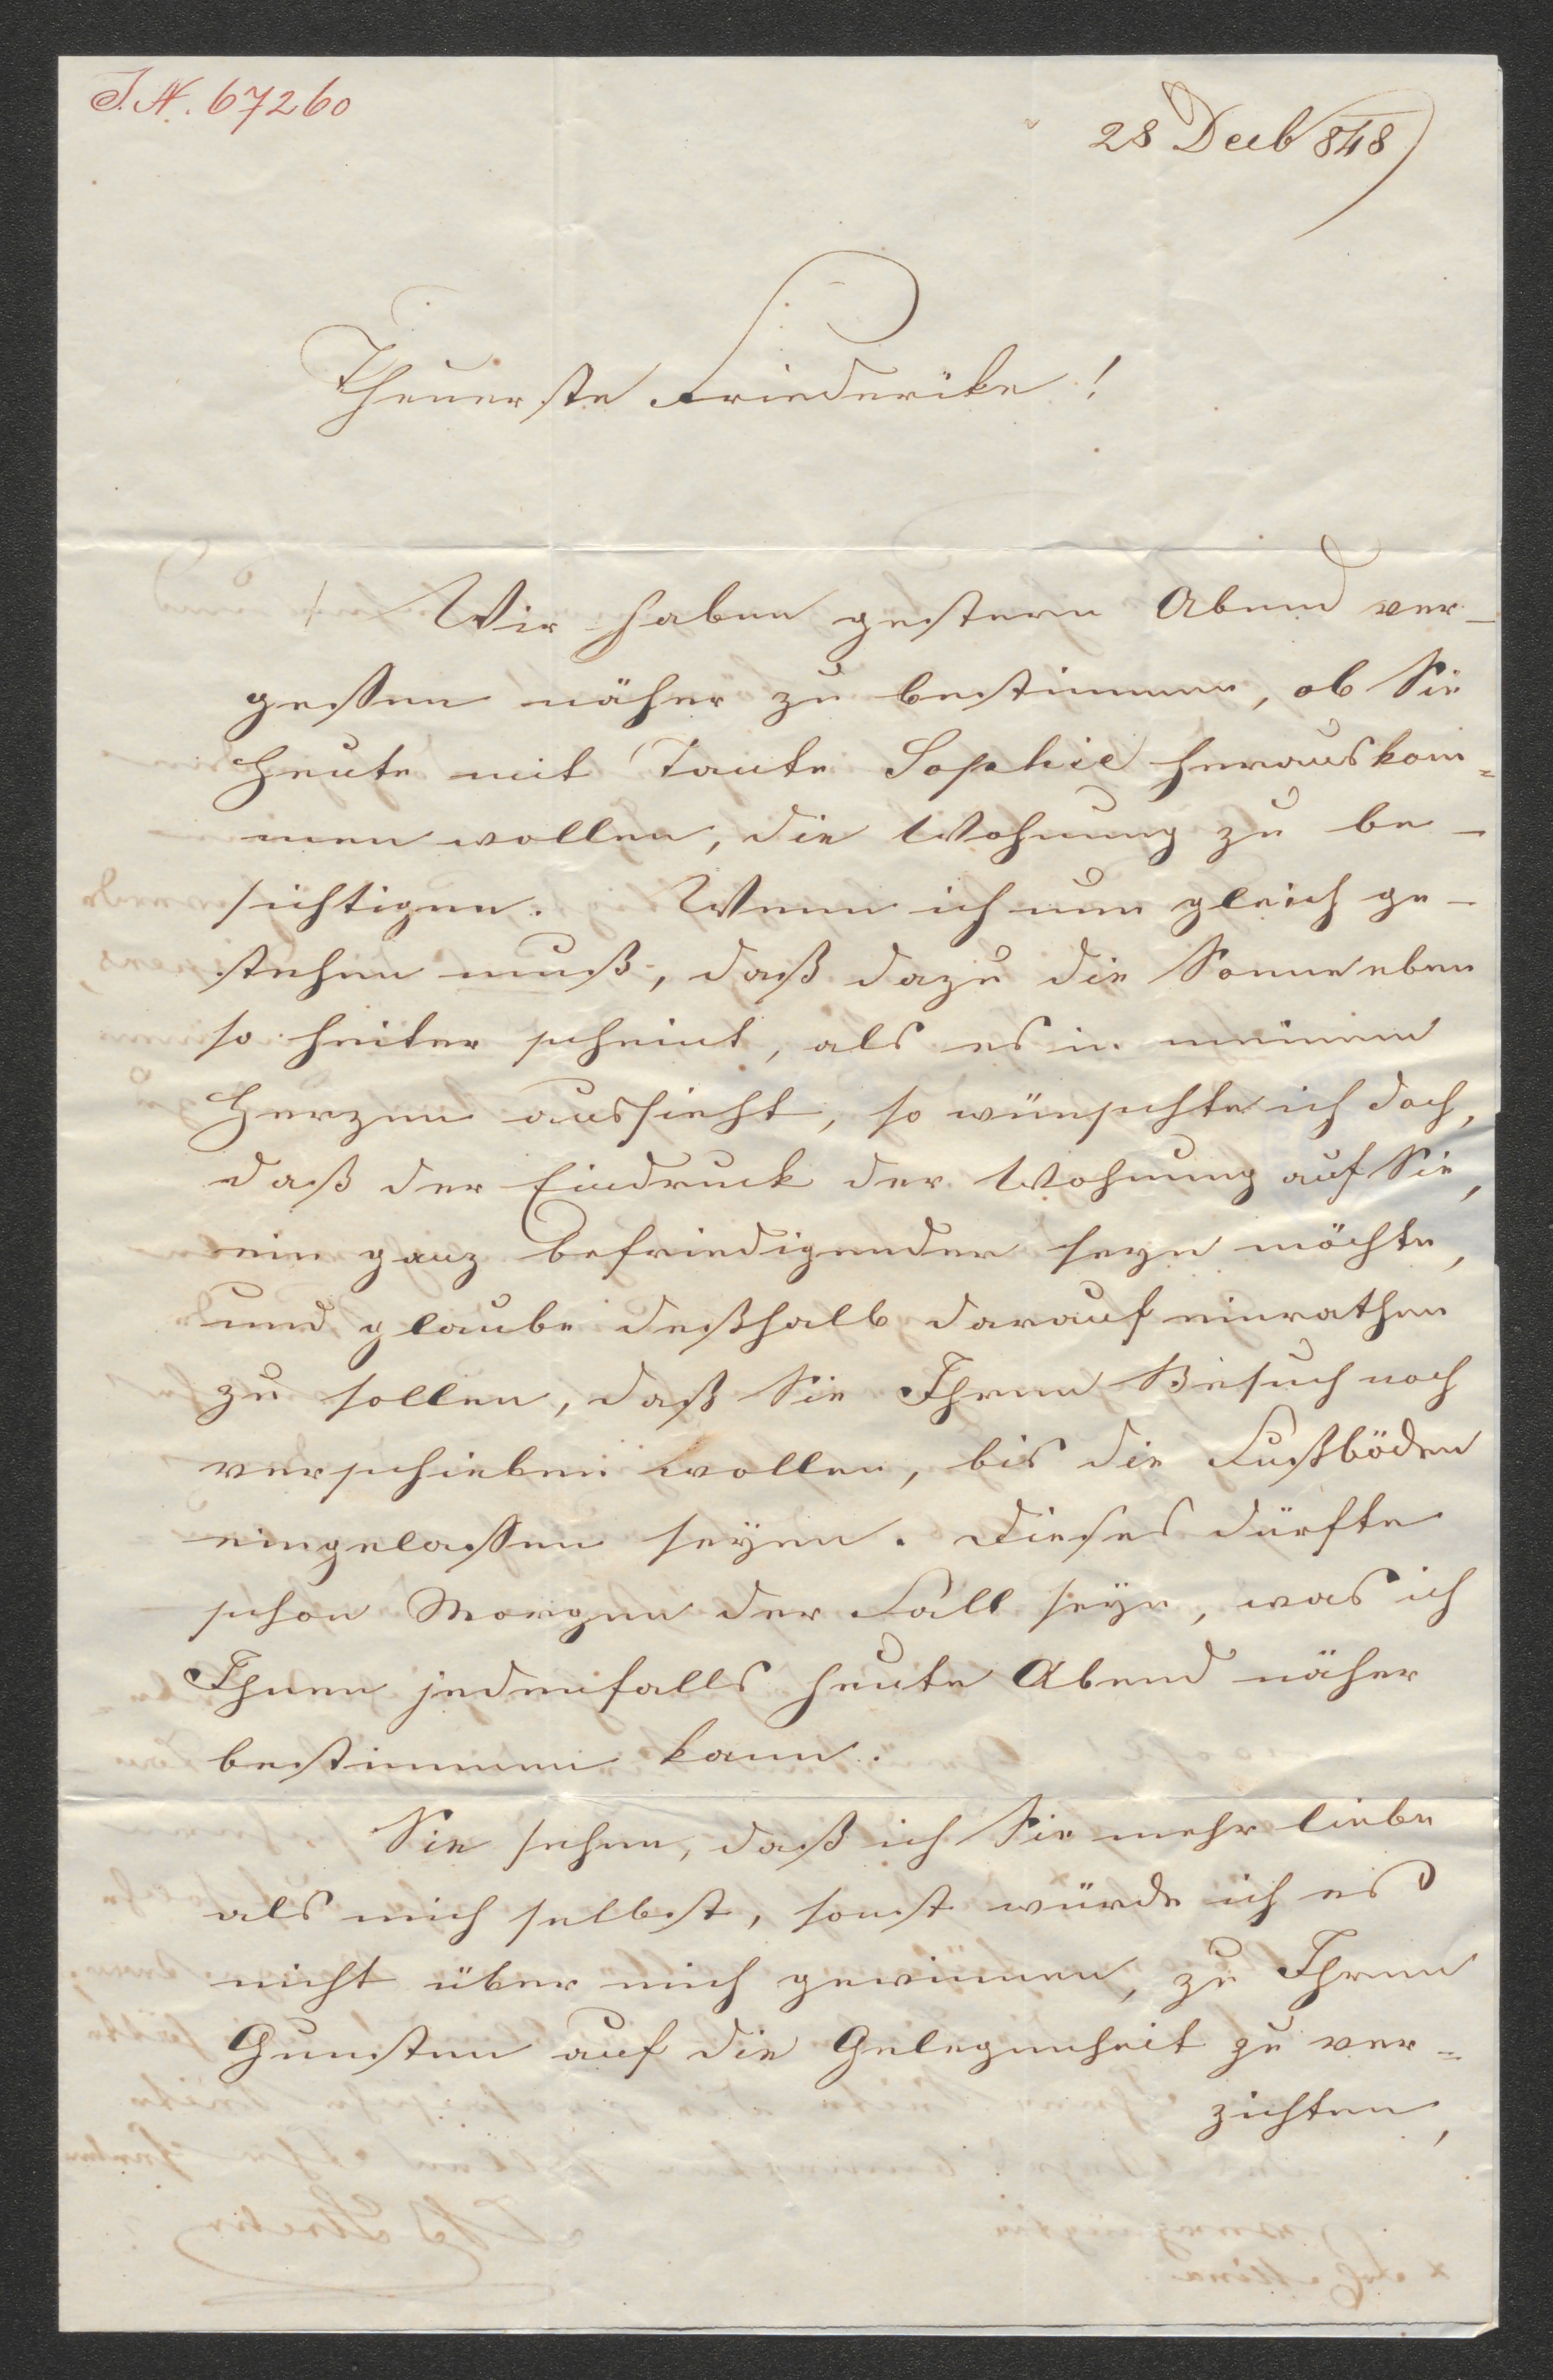 I.N. 67260
28 Decb 848
Theuerste Friederike!
Wir haben gestern Abend ver-
gessen näher zu bestimmen, ob Sie
heute mit Tante Sophie herauskom=
men wollen, die Wohnung zu be-
sichtigen. Wenn ich nun gleich ge-
stehen muß, daß dazu die Sonne eben
so heiter scheint, als es in meinem
Herzen aussieht, so wünschte ich doch,
daß der Eindruck der Wohnung auf Sie,
ein ganz befriedigender seyn möchte,
und glaube deßhalb darauf einrathen
zu sollen, daß Sie Ihren Besuch noch
verschieben wollen, bis die Fußböden
eingelassen seyen. Dieses dürfte
schon Morgen der Fall seyn, was ich
Ihnen jedenfalls heute Abend näher
bestimmen kann.
Sie sehen, daß ich Sie mehr liebe
als mich selbst, sonst würde ich es
nicht über mich gewinnen, zu Ihren
Gunsten auf die Gelegenheit zu ver=
zichten,